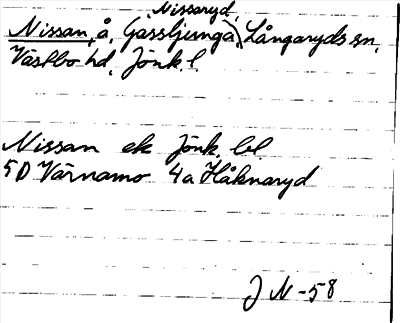 Nissaryd,
Nissan, å, Gassljunga, Långaryds sn,
Västbo hd, Jönk. l.
Nissan ek Jönk. bl
5D Värnamo 4a Håknaryd
J N -58